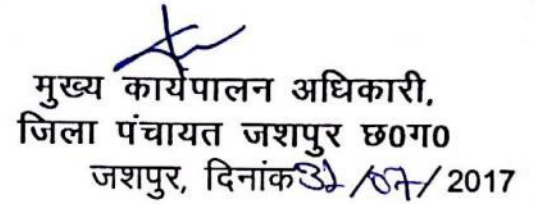 मुख्य कार्यपालन अधिकारी,
जिला पंचायत जशपुर छ0ग0
जशपुर, दिनांक 31/07/2017